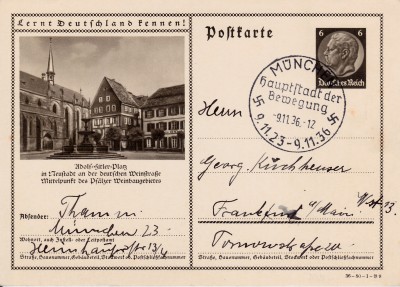 Lernt Deutschland kennen!
Postkarte
6 6
Deutsches Reich
MÜNCHEN
Hauptstadt der
Bewegung
-9.11.36.-12
9.11.23-9.11.36
Herrn
Georg Kirchheuser
Frankfurt a/Main
Adolf-Hitler-Platz
in Neustadt an der deutschen Weinstraße
Mittelpunkt des Pfälzer Weinbaugebietes
Absender: Thamm
München 23
Wohnort, auch Zustell- oder Leitpostamt
Straße, Hausnummer, Gebäudeteil, Stockwerk od. Postschließfachnummer
Straße, Hausnummer, Gebäudeteil, Stockwerk oder Postschließfachnummer